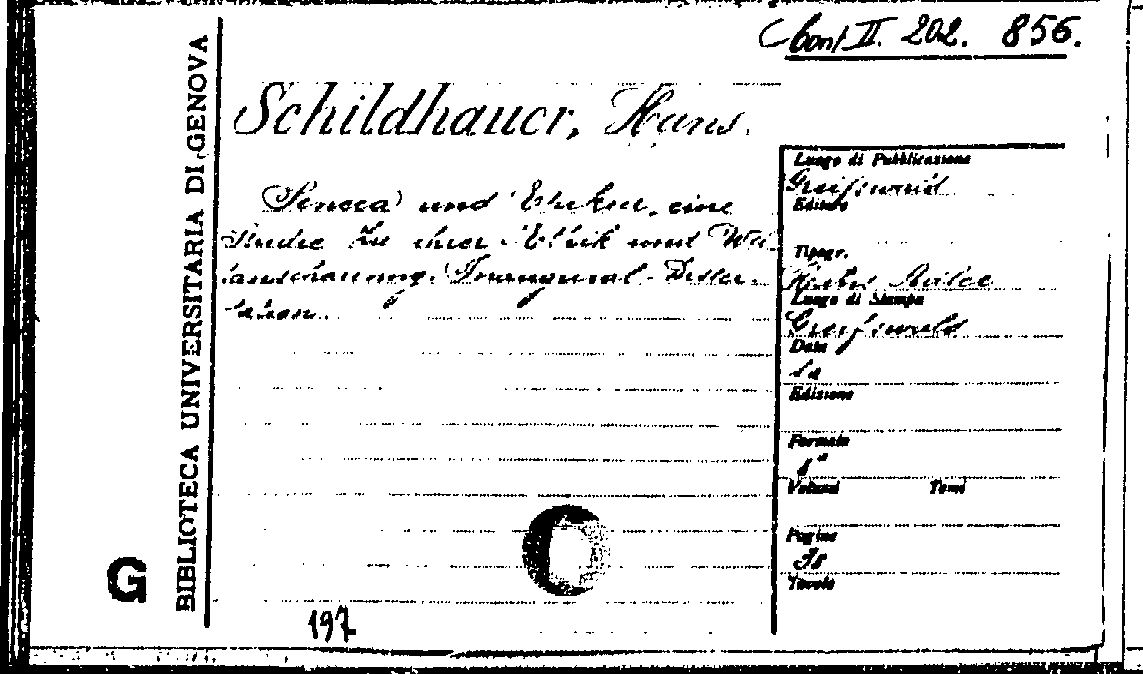 Cont II. 202. 856.
BIBLIOTECA UNIVERSITARIA DI GENOVA
G
Schildhauer, Hans.
Seneca und Epikur, eine
Studie zu ihrer Ethik und Wel
tanschauung. Inaugural-Disser-
tation.
197
Luogo di Pubblicazione
Greifswald
Editore
Tipogr.
Luogo di Stampa
Greifswald
Data
s.a
Edizione
Formato
8°
Volumi Tomi
Pagine
Tavole